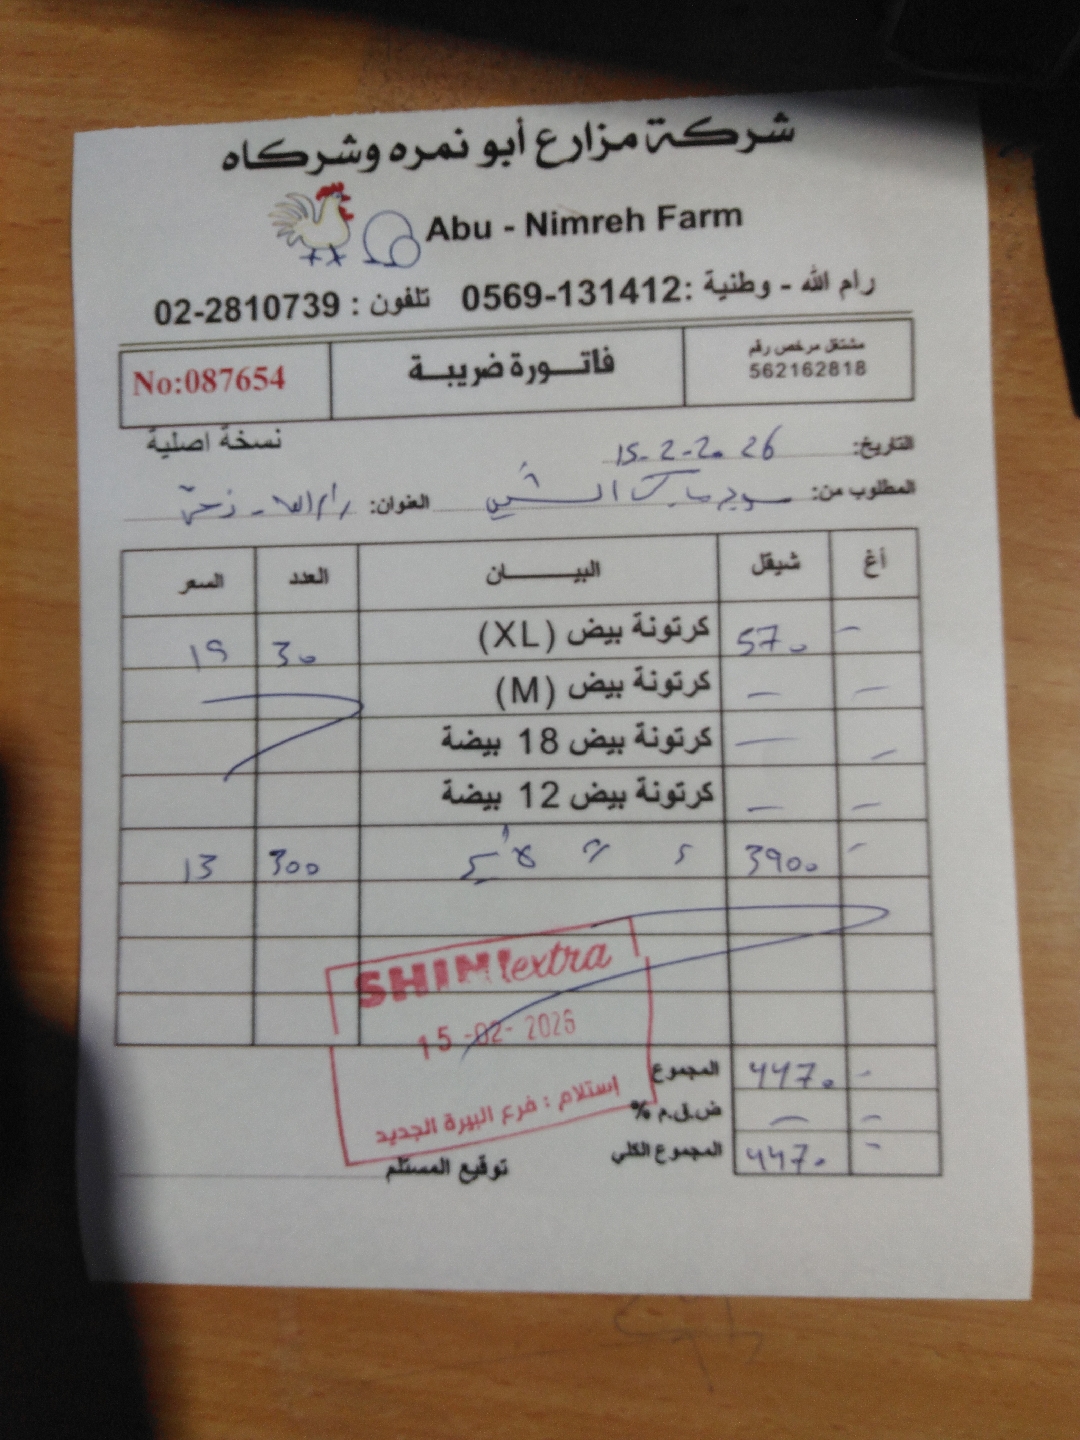 شركة مزارع أبو نمره وشركاه
Abu - Nimreh Farm
رام الله - وطنية: 0569-131412 تلفون : 02-2810739
مشتغل مرخص رقم
562162818
فاتورة ضريبة
No:087654
نسخة اصلية
التاريخ: 15-2-2026
المطلوب من: سوبر ماركت الشني العنوان: رام الله -
أغ شيقل البيان العدد السعر
- 570 كرتونة بيض (XL) 30 19
- - كرتونة بيض (M)
- - كرتونة بيض 18 بيضة
- - كرتونة بيض 12 بيضة
- 3900 300 13
SHINIextra
15-02-2026
استلام : فرع البيرة الجديد
المجموع 4470 -
ض.ق.م % - -
المجموع الكلي 4470 -
توقيع المستلم